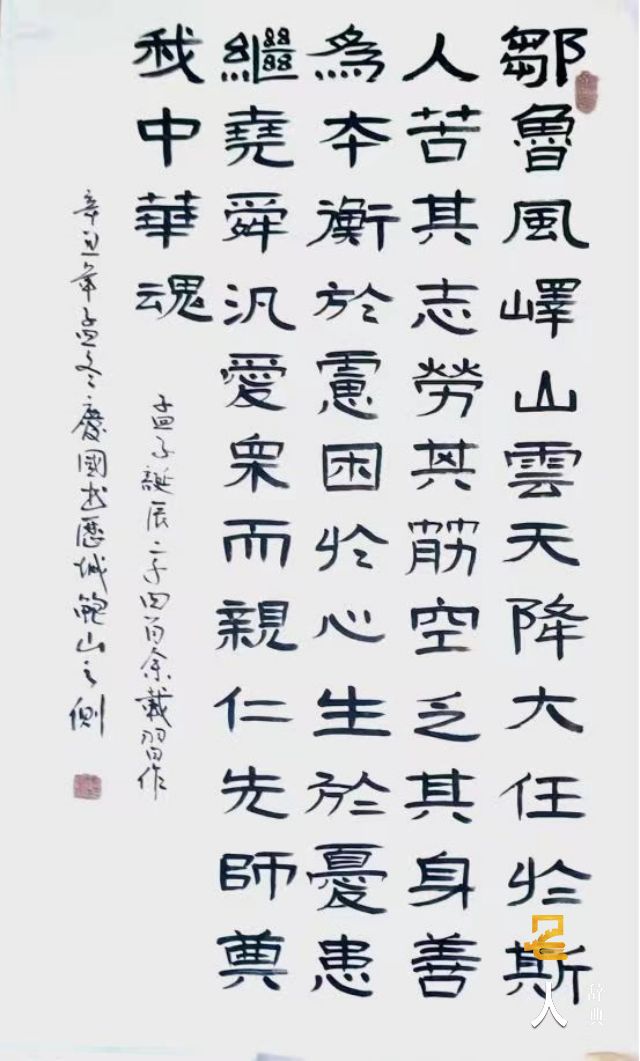 鄒魯風嶧山雲天降大任於斯
人苦其志勞其筋空乏其身善
為本衡於慮困於心生於憂患
繼堯舜汎愛眾而親仁先師奠
我中華魂
孟子誕辰二千四百余載習作
辛丑年孟冬慶國书歷城鲍山之側
名人
辞典